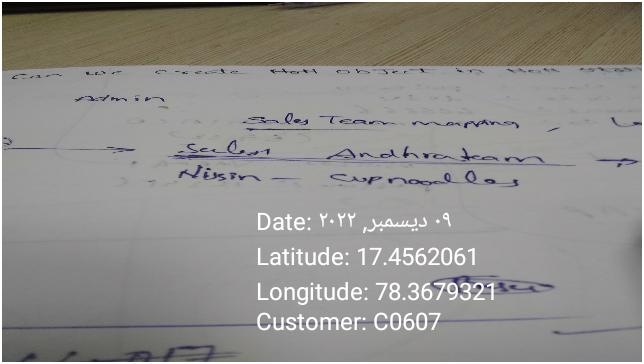 can we create Non object in Non stat
Admin
Sales Team mapping,
Sales Andhrateam
Nissin - cupnoodles
Date: ٠٩ ديسمبر, ٢٠٢٢
Latitude: 17.4562061
Longitude: 78.3679321
Customer: C0607